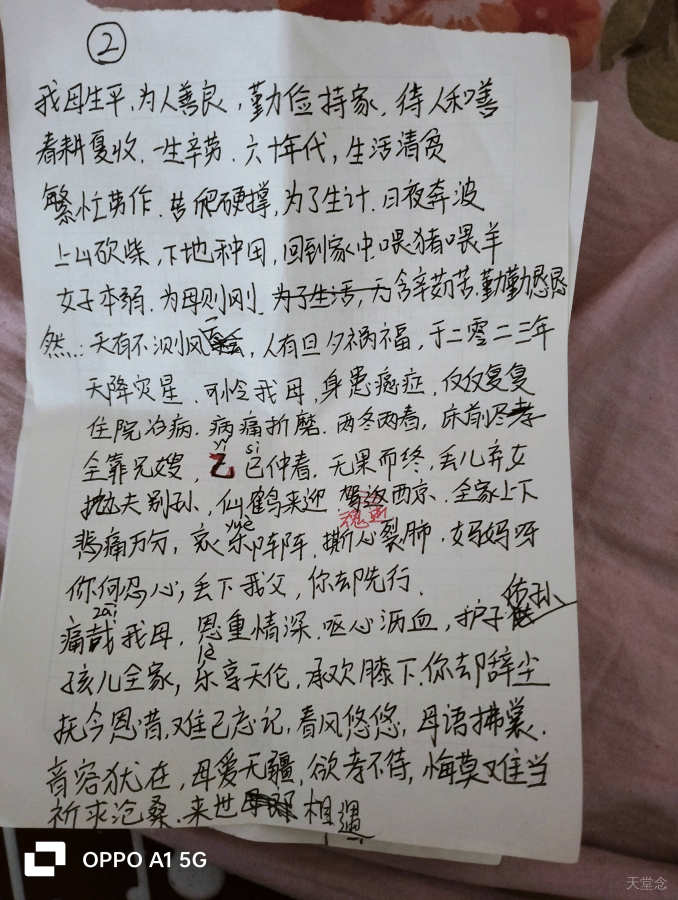 ②
我母生平,为人善良,勤俭持家,待人和善
春耕夏收.一生辛劳.六十年代,生活清贫
繁忙劳作.苦爬硬撑,为了生计.日夜奔波
上山砍柴,下地种田,回到家中.喂猪喂羊
女子本弱.为母则刚.为了生活,含辛茹苦.勤勤恳恳
然:天有不测风云,人有旦夕祸福,于二零二三年
天降灾星.可怜我母,身患癌症,反反复复
住院治病.病痛折磨.两冬两春,床前尽孝
yǐ sì
全靠兄嫂,乙巳仲春.无果而终,丢儿弃女
抛夫别孙,仙鹤来迎.驾返西京.全家上下
魂逝
悲痛万分,哀乐阵阵,撕心裂肺.妈妈呀
yuè
你何忍心,丢下我父,你却先行.
zāi
痛哉我母.恩重情深.呕心沥血,护子佑孙
lè
孩儿全家,乐享天伦,承欢膝下.你却辞尘
抚今思昔,难已忘记,春风悠悠,母语拂裳.
音容犹在,母爱无疆,欲孝不待,悔莫难当
祈求沧桑.来世相遇
OPPO A1 5G
天堂念